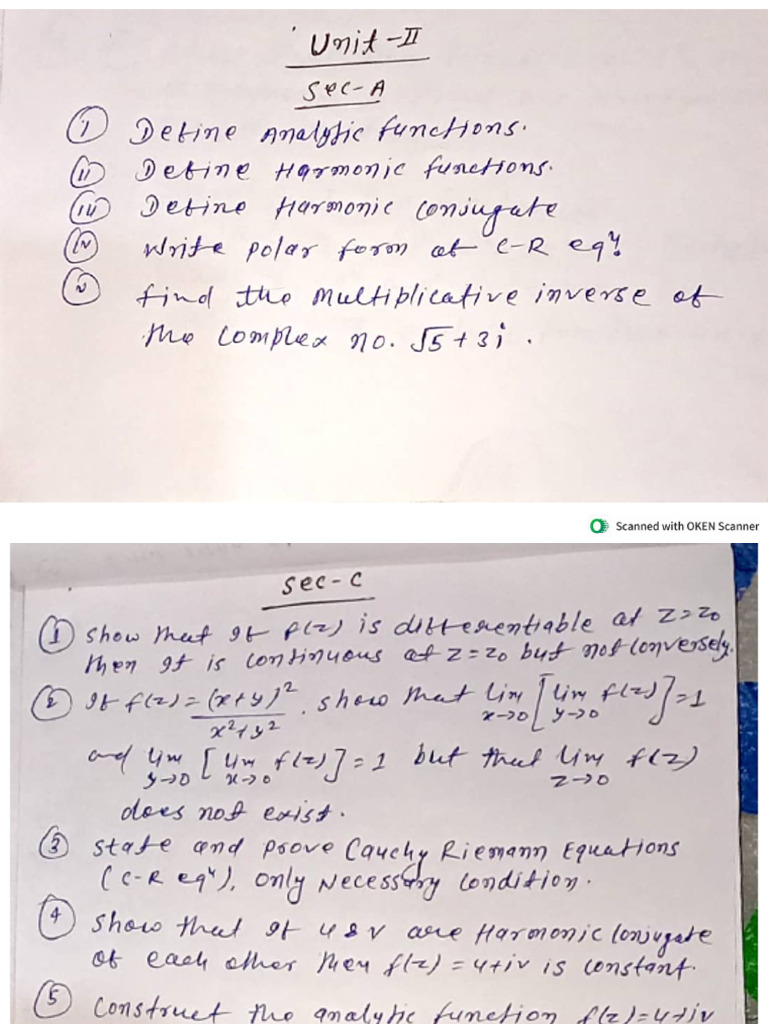 Unit-II
Sec-A
(i) Define Analytic functions.
(ii) Define Harmonic functions.
(iii) Define Harmonic Conjugate
(iv) Write polar form of C-R eqⁿ.
(v) find the multiplicative inverse of
the complex no. √5+3i.
Scanned with OKEN Scanner
Sec-C
① Show that If f(z) is differentiable at z=z₀
then It is continuous at z=z₀ but not conversely.
② If f(z) = (x+y)²/x²+y². show that lim x→0 [lim y→0 f(z)]=1
and lim y→0 [lim x→0 f(z)]=1 but that lim z→0 f(z)
does not exist.
③ State and prove Cauchy Riemann Equations
(C-R eqⁿ), only Necessary Condition.
④ Show that If u & v are Harmonic Conjugate
of each other then f(z) = u+iv is constant.
⑤ Construct the analytic function f(z)=u+iv